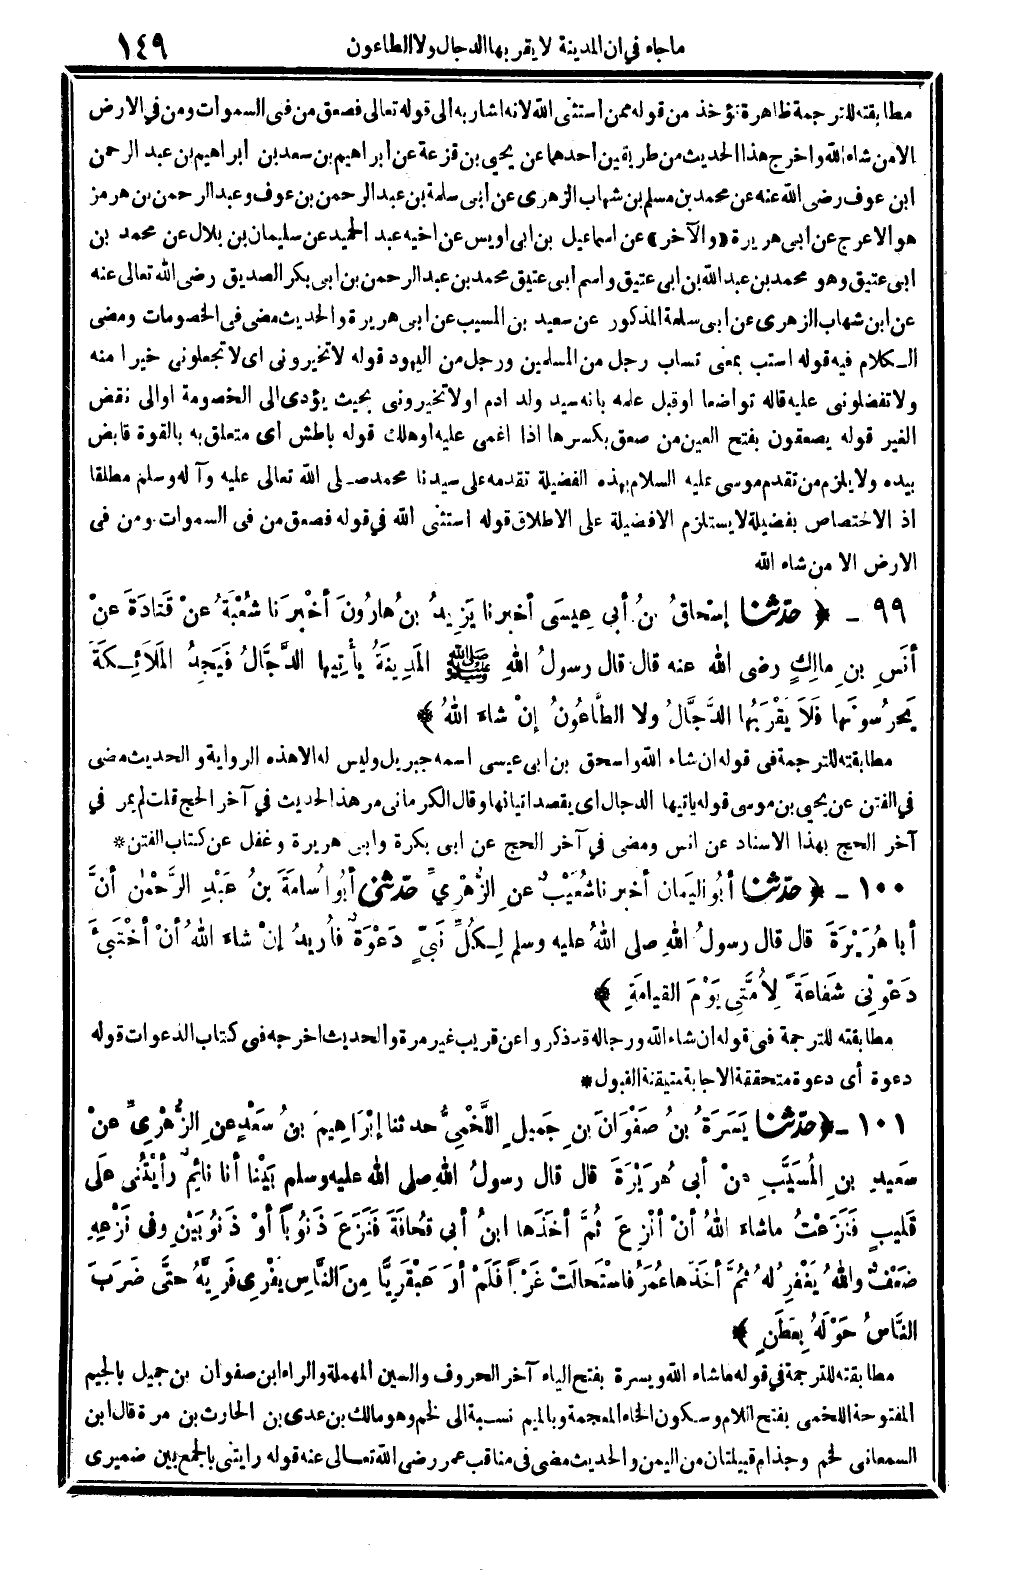 ما جاء في ان المدينة لا يقربها الدجال ولا الطاعون ١٤٩
مطابقته للترجمة ظاهرة تؤخذ من قوله ممن استثنى الله لانه اشار به الى قوله تعالى فصعق من فى السموات ومن في الارض
الا من شاء الله واخرج هذا الحديث من طريقين احدهما عن يحيى بن قزعة عن ابراهيم بن سعد بن ابراهيم بن عبد الرحمن
ابن عوف رضى الله عنه عن محمد بن مسلم بن شهاب الزهرى عن أبى سلمة بن عبد الرحمن بن عوف وعبد الرحمن بن هرمز
هو الاعرج عن ابى هريرة (والآخر) عن اسماعيل بن ابى اويس عن اخيه عبد الحميد عن سليمان بن بلال عن محمد بن
ابى عتيق وهو محمد بن عبد الله بن ابى عتيق واسم ابى عتيق محمد بن عبد الرحمن بن ابى بكر الصديق رضى الله تعالى عنه
عن ابن شهاب الزهرى عن ابى سلمة المذكور عن سعيد بن المسيب عن ابى هريرة والحديث مضى فى الخصومات ومضى
الكلام فيه قوله استب بمعنى تساب رجل من المسلمين ورجل من اليهود قوله لا تخيرونى اى لا تجعلونى خيرا منه
ولا تفضلونى عليه قاله تواضعا او قبل علمه بانه سيد ولد ادم او لا تخيرونى بحيث يؤدى الى الخصومة او الى نقض
الغير قوله يصعقون بفتح العين من صعق بكسرها اذا اغمى عليه او هلك قوله باطش أى متعلق به بالقوة قابض
بيده ولا يلزم من تقدم موسى عليه السلام بهذه الفضيلة تقدمه على سيدنا محمد صلى الله تعالى عليه وآله وسلم مطلقا
اذ الاختصاص بفضيلة لا يستلزم الافضيلة على الاطلاق قوله استثنى الله في قوله فصعق من فى السموات ومن فى
الارض الا من شاء الله
٩٩ - ﴿ حدّثنا إسْحاقُ بنُ أبي عِيسَى أخبرنا يَزِيدُ بنُ هارُونَ أخْبرَنا شُعْبَةُ عنْ قَتادَةَ عنْ
أنَسِ بنِ مالِكٍ رضى الله عنه قال قال رسولُ اللهِ ﷺ المَدِينَةُ يأتِيها الدَّجَّالُ فَيَجِدُ المَلَائِكَةَ
يَحرُسُونَها فَلاَ يَقْرَبُها الدَّجَّالُ ولا الطَّاعُونُ إنْ شاءَ اللهُ ﴾
مطابقته للترجمة فى قوله ان شاء الله واسحق بن ابى عيسى اسمه جبريل وليس له الا هذه الرواية والحديث مضى
في الفتن عن يحيى بن موسى قوله ياتيها الدجال اى يقصد اتيانها وقال الكرمانى مر هذا الحديث في آخر الحج قلت لم يمر في
آخر الحج بهذا الاسناد عن انس ومضى في آخر الحج عن ابى بكرة وابى هريرة وغفل عن كتاب الفتن *
١٠٠ - ﴿ حدّثنا أبُو اليَمان أخبرنا شُعَيْبٌ عنِ الزُّهْرِيِّ حدّثنى أبُو سَلَمَةَ بنُ عَبْدِ الرَّحْمٰنِ أنَّ
أبا هُرَيْرَةَ قال قال رسولُ اللهِ صلى اللهُ عليه وسلم لِكُلِّ نَبِيٍّ دَعْوَةٌ فأُرِيدُ إنْ شاءَ اللهُ أنْ أخْتَبِئَ
دَعْوَتِي شَفاعَةً لِأُمَّتِي يَوْمَ القِيامَةِ ﴾
مطابقته للترجمة فى قوله ان شاء الله ورجاله قد ذكروا عن قريب غير مرة والحديث اخرجه فى كتاب الدعوات قوله
دعوة أى دعوة متحققة الاجابة متيقنة القبول *
١٠١ - ﴿ حدّثنا يَسَرَةُ بنُ صَفْوَانَ بنِ جَمِيلٍ اللَّخْمِيُّ حدثنا إبْرَاهِيمَ بنُ سَعْدٍ عنِ الزُّهْرِيِّ عنْ
سَعِيدِ بنِ المُسَيَّبِ عنْ أبى هُرَيْرَةَ قال قال رسولُ اللهِ صلى اللهُ عليه وسلم بَيْنا أنا نائِمٌ رأيْتُنِى علَى
قَلِيبٍ فَنَزَعْتُ ماشاءَ اللهُ أنْ أنْزِعَ ثُمَّ أخَذَها ابنُ أبي قُحافَةَ فَنَزَعَ ذَنُوباً أوْ ذَنُوبَيْنِ وفى نَزْعِهِ
ضَعْفٌ واللهُ يَغْفِرُ لهُ ثُمَّ أخَذَها عُمَرُ فاسْتَحالَتْ غَرْباً فَلَمْ أرَ عَبْقَرِيًّا مِنَ النَّاسِ يَفْرِى فَرِيَّهُ حتَّى ضَرَبَ
النَّاسُ حَوْلَهُ بِعَطَنٍ ﴾
مطابقته للترجمة في قوله ماشاء الله ويسرة بفتح الياء آخر الحروف والسين المهملة والراء ابن صفوان بن جميل بالجيم
المفتوحة اللخمى بفتح اللام وسكون الخاء المعجمة وبالميم نسبة الى لخم وهو مالك بن عدى بن الحارث بن مرة قال ابن
السمعانى لخم وجذام قبيلتان من اليمن والحديث مضى فى مناقب عمر رضى الله تعالى عنه قوله رايتنى بالجمع بين ضميرى